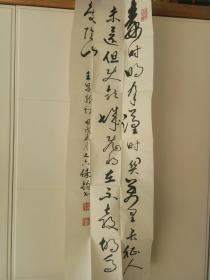 秦时明月汉时关万里长征人
未还但使龙城飞将在不教胡马
度阴山
王昌龄